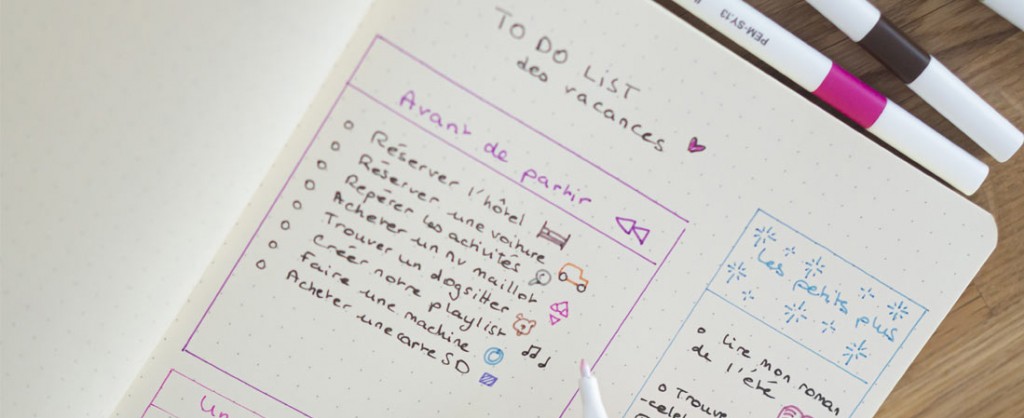 TO DO LIST
des vacances
Avant de partir
Réserver l'hôtel
Réserver une voiture
Repérer les activités
Acheter un nv maillot
Trouver un dogsitter
Créer notre playlist
Faire une machine
Acheter une carte SD
Les petits plus
Lire mon roman
de l'été
Trouve
PEM-SY33